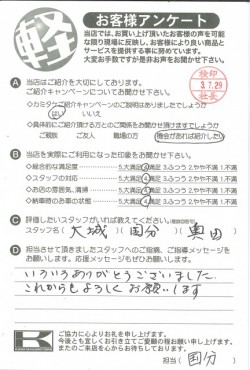 軽
お客様アンケート
当店では、お買い上げ頂いたお客様の声を可能
な限り現場に反映し、お客様により良い商品と
サービスを提供する事に努めています。
大変お手数ですが是非お声をお聞かせ下さい。
検印
3.7.29
社長
A 当店はご紹介を大切にしております。
ご紹介キャンペーンについてお聞かせ下さい
◇カミタケご紹介キャンペーンのご説明はありましたでしょうか
はい いいえ
◇具体的にご紹介頂ける方とのご関係をお聞かせ頂けますでしょうか
ご親族 ご友人 職場の方 機会があれば紹介したい
B 当店を実際にご利用になった印象をお聞かせ下さい。
◇総合的な満足度 5.大満足 4.満足 3.ふつう 2.やや不満 1.不満
◇スタッフの対応 5.大満足 4.満足 3.ふつう 2.やや不満 1.不満
◇お店の雰囲気、清掃 5.大満足 4.満足 3.ふつう 2.やや不満 1.不満
◇納車時のお車の状態 5.大満足 4.満足 3.ふつう 2.やや不満 1.不満
C 評価したいスタッフがいれば教えてください。(複数回答可)
スタッフ名( 大城 )( 国分 ) 奥田
D 担当させて頂きましたスタッフへのご指摘、ご指導メッセージを
お願いします。応援メッセージもぜひお願いします。
いろいろありがとうございました.
これからもよろしくお願いします
K
ご協力に心よりお礼を申し上げます。
今後とも宜しくお引き立てご愛顧の程お願い申し上げます。
またのご来店を心からお待ちしております。
担当( 国分 )